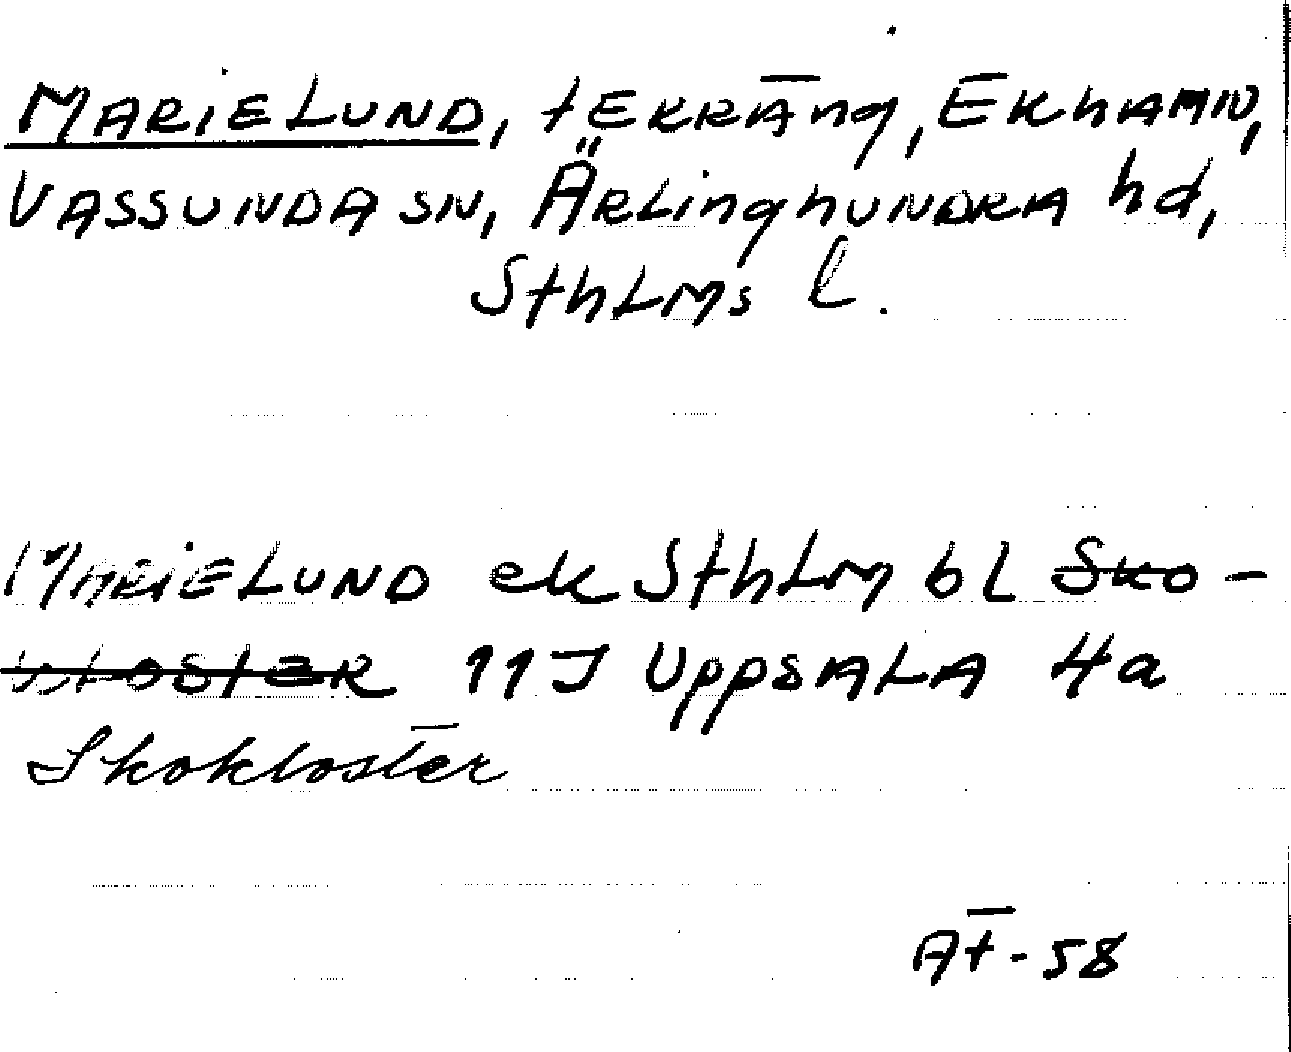 MARIELUND, tERRÄng, EKhAMN,
VASSUNDA SN, ÄRLinghUNDRA hd,
SthLMs l.
MARIELUND ek SthLM bl Sko-
kloster 11J UppsALA 4a
Skokloster
AT-58